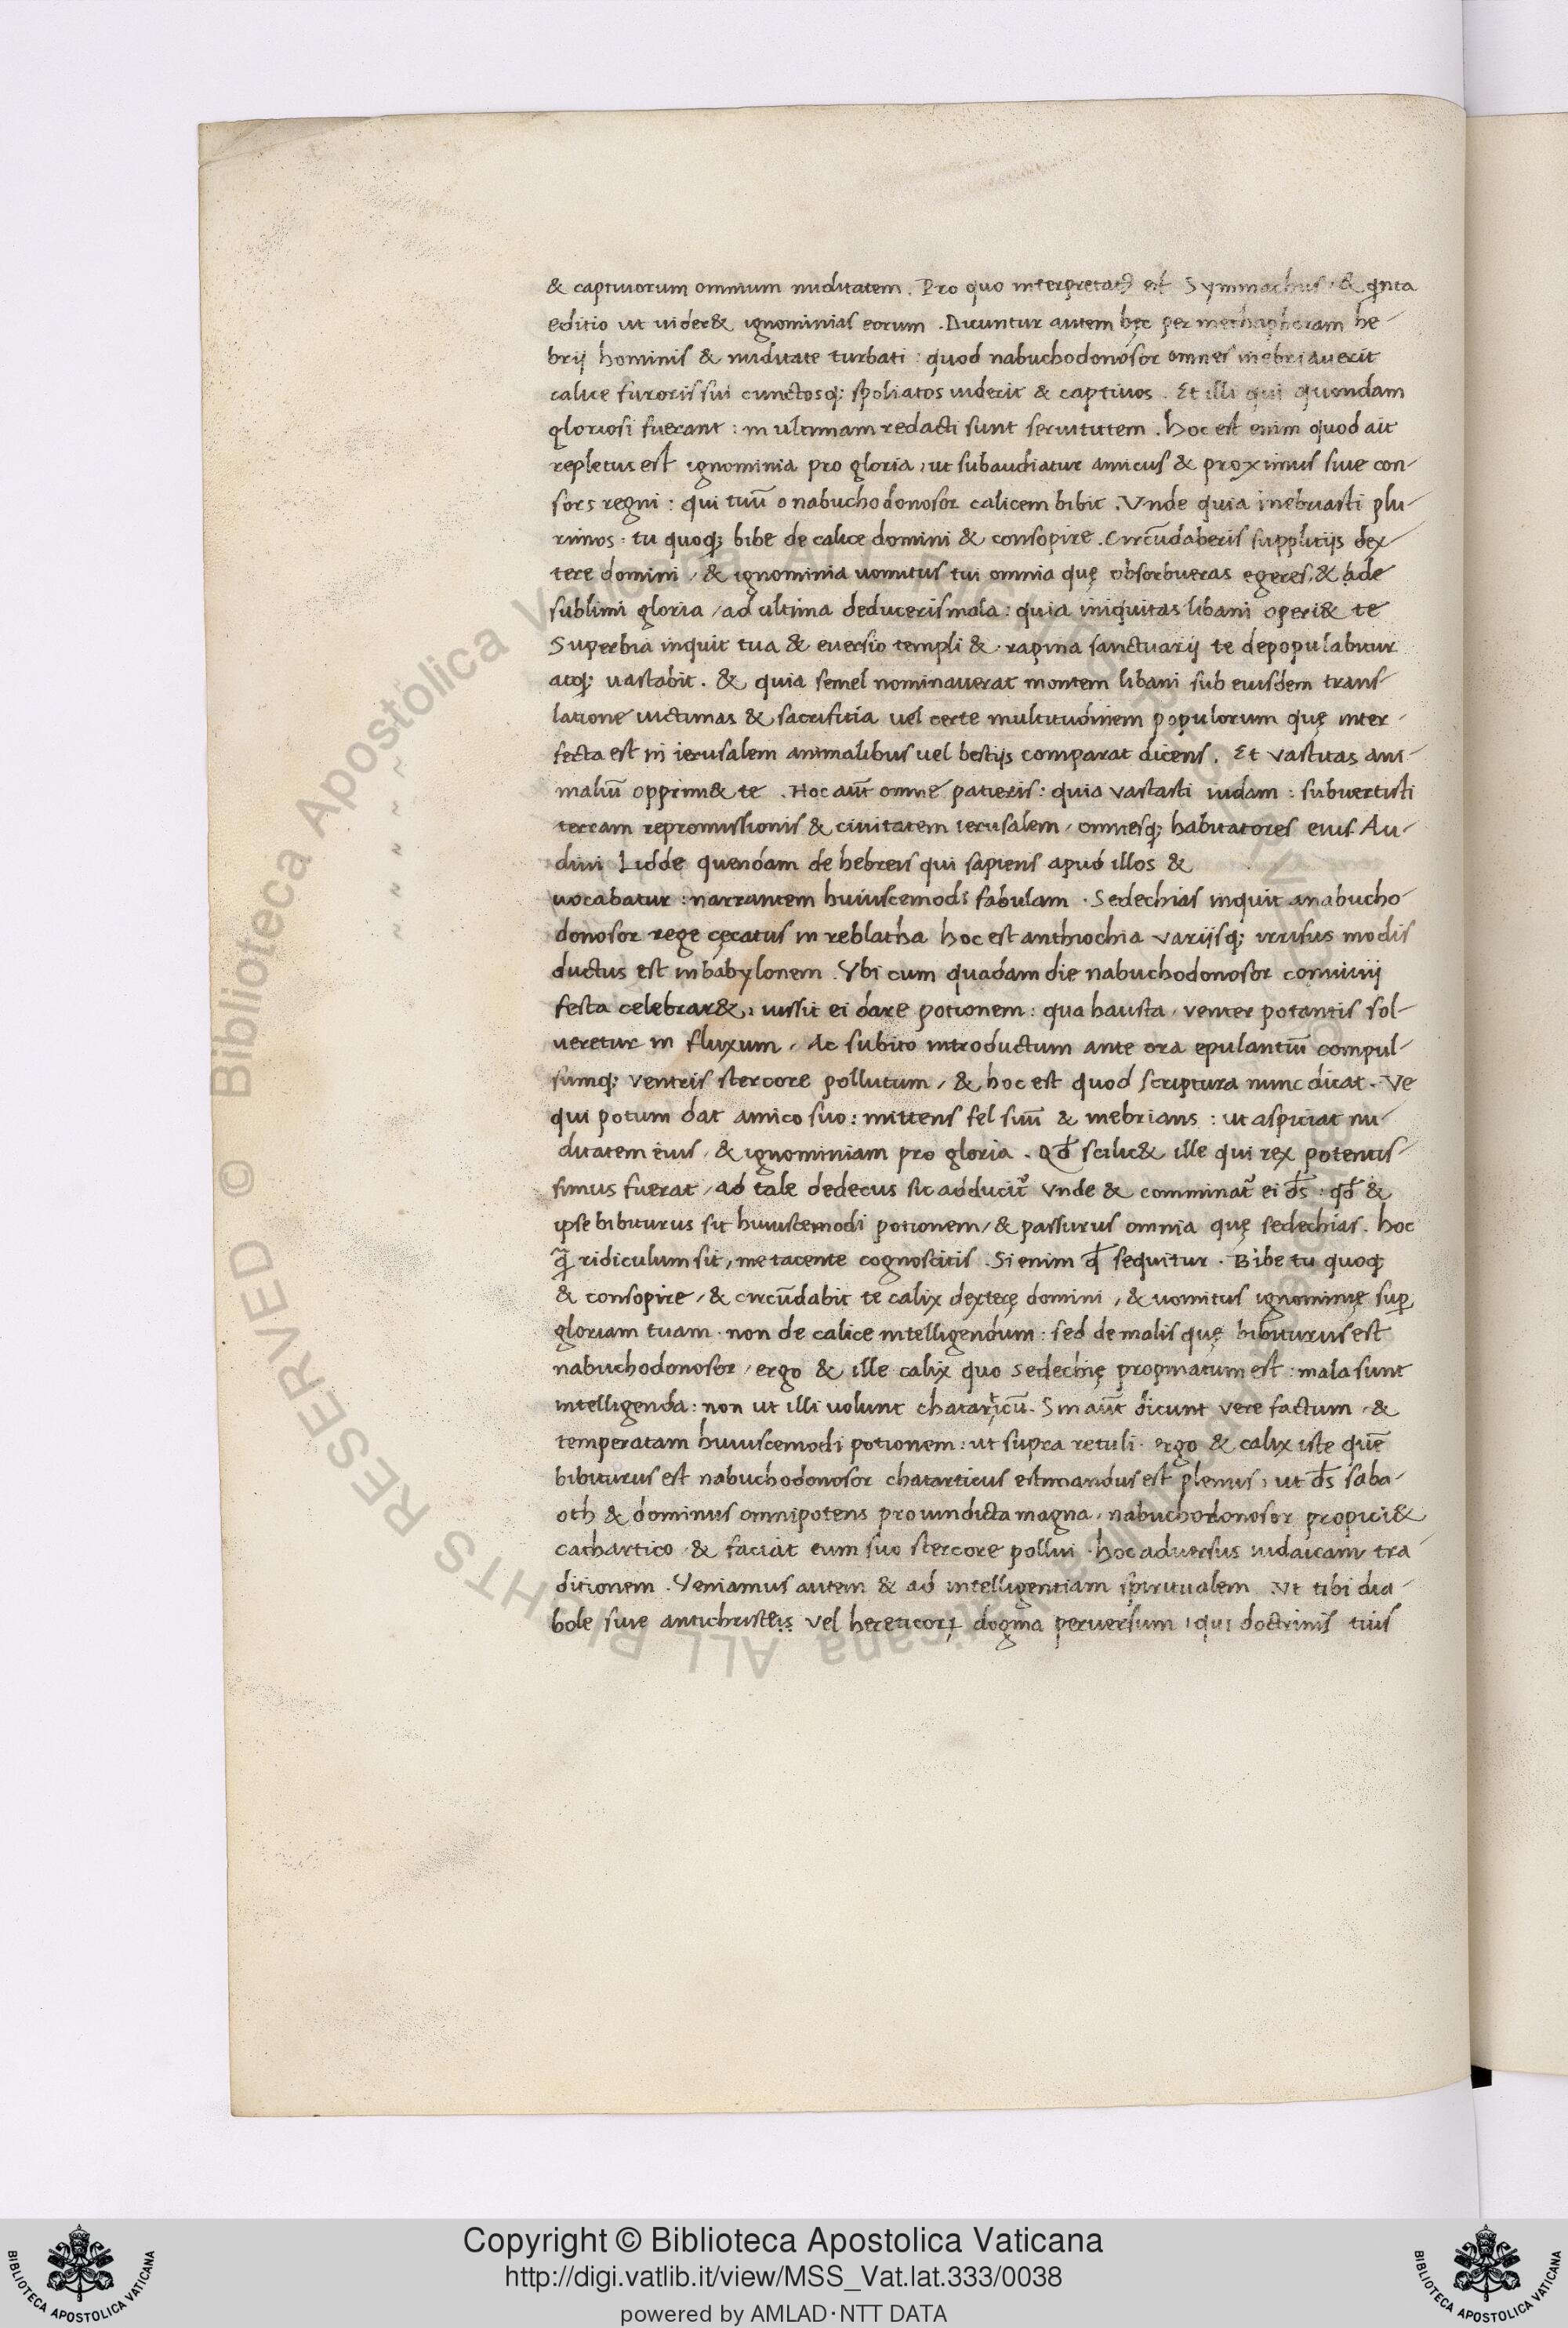 & captiuorum omnium nuditatem. Pro quo interpretatꝰ est Symmachus · & qͥnta
editio ut uider& ignominias eorum. Dicuntur autem hęc per methaphoram he-
brij hominis & nuditate turbati: quod nabuchodonosor omnes inebriauerit
calice furoris sui cunctosq; spoliatos uiderit & captiuos. Et illi qui quondam
gloriosi fuerant: in ultimam redacti sunt seruitutem. hoc est enim quod ait
repletus est ignominia pro gloria, ut subaudiatur amicus & proximus siue con-
sors regni: qui tuū o nabuchodonosor calicem bibit. Vnde quia inebriasti plu-
rimos· tu quoq; bibe de calice domini & consopire. Circūdaberis supplitijs dex-
tere domini / & ignominia uomitus tui omnia quę obsorbueras egeres. & ade
sublimi gloria / ad ultima deduceris mala: quia iniquitas libani operi& te
Superbia inquit tua & euersio templi & rapina sanctuarij te depopulabitur
atq; uastabit. & quia semel nominauerat montem libani sub eiusdem trans-
latione uictimas & sacrifitia uel certe multitudinem populorum quę inter-
fecta est in ierusalem animalibus uel bestijs comparat dicens. Et vastitas ani-
maliū opprim& te. Hoc aūt omne patieris: quia vastasti iudam: subuertisti
terram repromissionis & ciuitatem ierusalem / omnesq; habitatores eius. Au-
diui Lidde quendam de hebreis qui sapiens apud illos &
uocabatur: narrantem huiuscemodi fabulam. Sedechias inquit anabucho-
donosor rege cęcatus in reblatha hoc est anthiochia variisq; irrisus modis
ductus est in babylonem. Vbi cum quadam die nabuchodonosor conuiuij
festa celebrar&, iussit ei dare potionem: qua hausta / venter potantis sol-
ueretur in fluxum / Ac subito introductum ante ora epulantiū compul-
sumq; ventris stercore pollutum / & hoc est quod scriptura nunc dicat. Ve
qui potum dat amico suo: mittens fel suū & inebrians: ut aspiciat nu-
ditatem eius / & ignominiam pro gloria. Qd̄ scilic& ille qui rex potentis-
simus fuerat / ad tale dedecus sit adducit᷑ Vnde & comminat᷑ ei d̄s: qd̄ &
ipse bibiturus sit huiuscemodi potionem / & passurus omnia quę sedechias. hoc
q̄ꝫ ridiculum sit, me tacente cognoscitis. Si enim qd̄ sequitur. Bibe tu quoq;
& consopire / & circūdabit te calix dexterę domini, & uomitus ignominię suꝑ
gloriam tuam· non de calice intelligendum: sed de malis quę bibiturus est
nabuchodonosor / ergo & ille calix quo sedechię propinatum est: mala sunt
intelligenda: non ut illi uolunt chatarticū. Sin aūt dicunt vere factum / &
temperatam huiuscemodi potionem: ut supra retuli· ergo & calix iste quē
bibiturus est nabuchodonosor chatarticus estimandus est plenus, ut d̄s saba-
oth & dominus omnipotens pro uindicta magna / nabuchodonosor propici&
cathartico · & faciat eum suo stercore pollui · hoc aduersus iudaicam tra
ditionem. Veniamus autem & ad intelligentiam spiritualem. Vt tibi dia-
bole siue antichristeis vel hereticoꝝ dogma peruersum, qui doctrinis tuis
Copyright © Biblioteca Apostolica Vaticana
http://digi.vatlib.it/view/MSS_Vat.lat.333/0038
powered by AMLAD·NTT DATA
BIBLIOTECA APOSTOLICA VATICANA
BIBLIOTECA APOSTOLICA VATICANA